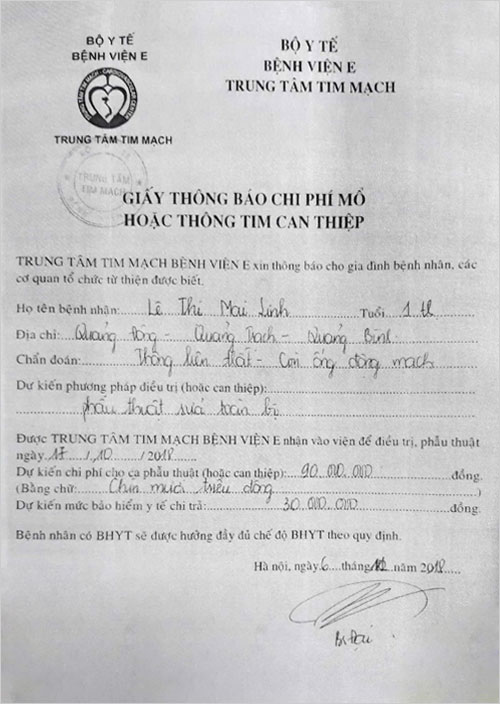 BỘ Y TẾ
BỆNH VIỆN E
TRUNG TÂM TIM MẠCH - CARDIOVASCULAR CENTER
TRUNG TÂM TIM MẠCH
BỘ Y TẾ
BỆNH VIỆN E
TRUNG TÂM TIM MẠCH
TRUNG TÂM
TIM MẠCH
GIẤY THÔNG BÁO CHI PHÍ MỔ
HOẶC THÔNG TIM CAN THIỆP
TRUNG TÂM TIM MẠCH BỆNH VIỆN E xin thông báo cho gia đình bệnh nhân, các
cơ quan tổ chức từ thiện được biết.
Họ tên bệnh nhân: Lê Thị Mai Linh Tuổi 1 th
Địa chỉ: Quảng Đông - Quảng Trạch - Quảng Bình
Chẩn đoán: Thông liên thất - Còn ống động mạch
Dự kiến phương pháp điều trị (hoặc can thiệp):
phẫu thuật sửa toàn bộ
Được TRUNG TÂM TIM MẠCH BỆNH VIỆN E nhận vào viện để điều trị, phẫu thuật
ngày 17 / 10 / 2018
Dự kiến chi phí cho ca phẫu thuật (hoặc can thiệp): 90.000.000 đồng.
(Bằng chữ: Chín mươi triệu đồng )
Dự kiến mức bảo hiểm y tế chi trả: 30.000.000 đồng.
Bệnh nhân có BHYT sẽ được hưởng đầy đủ chế độ BHYT theo quy định.
Hà nội, ngày 6 tháng năm 2018
Bs Đại